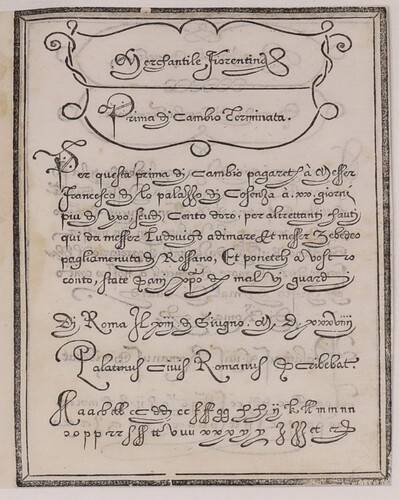 Merchantile Fiorentina
Prima di Cambio Terminata.
Per questa prima di Cambio pagareti à Messer
Francesco di lo palazzo di Cosenza à .xx. giorni
piu di uso, scudi Cento doro, per altrettanti hauti
qui da messer Ludovico adimare, et messer Zebedeo
pagliamenuta di Rossano, Et poneteli a vostro
conto, state sani xpo di mal vi guardi
Di Roma Il xiii di Giugno. M. D. xxxviiii
Palatinus Civis Romanus Scribebat.
A a a b c d e